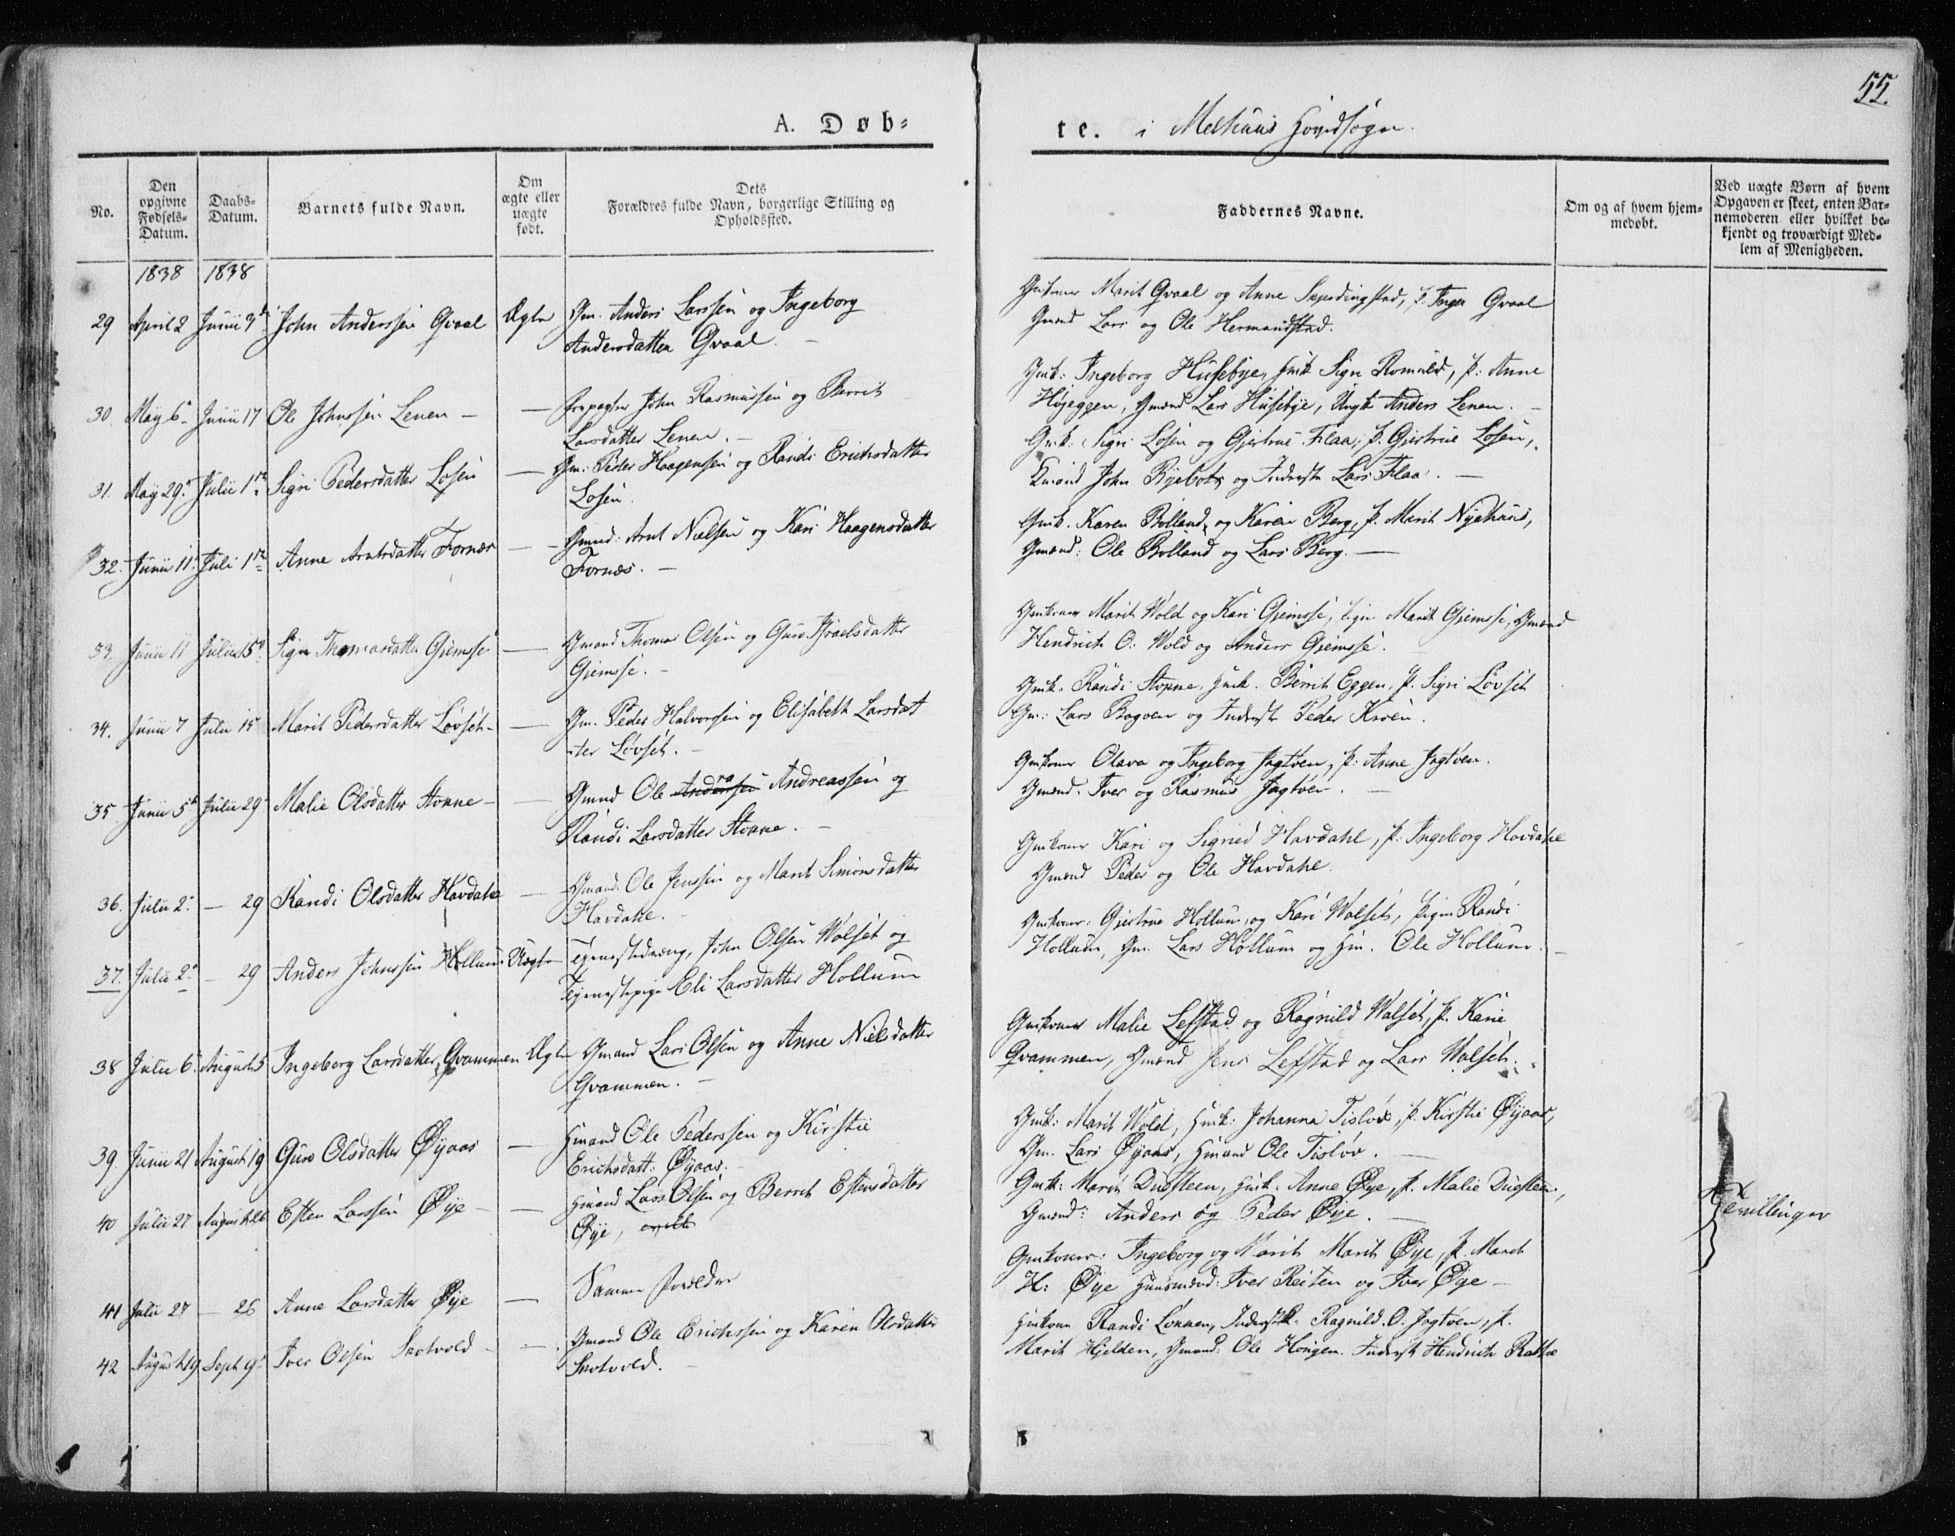 55.
A. Døb=
te. i Melhuus Hovedsogn.
No.
Den opgivne Fødsels-Datum.
Daabs-Datum.
Barnets fulde Navn.
Om ægte eller uægte født.
Dets Forældres fulde Navn, borgerlige Stilling og Opholdssted.
Faddernes Navne.
Om og af hvem hjemmedøbt.
Ved uægte Børn af hvem Opgaven er skeet, enten Barnemoderen eller hvilket bekjendt og troværdigt Medlem af Menigheden.
1838 1838
29 April 2 Junii 3d John Anderssen Qvaal Ægte Gm. Anders Larssen og Ingeborg
Andersdatter Qvaal.
Gmkoner Marit Qvaal og Anne Skjerdingstad, P. Inger Qvaal
Gmænd Lars og Ole Hermandstad.
30. May 6 Junii 17 Ole Johnssen Lenen — — John Rasmussen og Berrit
Larsdatter Lenen. —
Gmk: Ingeborg Husebye, Husk Sigri Romuld, P: Anne
Høyeggen, Gmænd Lars Husebye, Ungk Anders Lenen. —
31. May 29. Julii 1ste Sigri Pedersdatter Losen — Gm: Peder Haagenssen og Randi Erichsdatter
Losen.
Gmk: Sigri Losen og Gjertrue Flaa, P. Gjertrue Losen,
John Ryebots og Inderste Lars Flaa. —
32. Junii 11. Juli 1ste Anne Arntsdatter Fornæs — Gmand: Arnt Nielsen og Kari Haagensdatter
Fornæs. —
Gmk. Karen Bolland og Karen Berg, P. Marit Nyehuus,
Gmænd: Ole Bolland og Lars Berg. —
33. Junii 11 Julii 15d Sigri Thomasdatter Gjemsse — Gmand Thomas Olsen og Guro Israelsdatter
Gjemsse. —
Gmkoner Marit Wold og Kari Gjemsse, Pigen Marit Gjemsse, Gmænd
Hendrich O: Wold og Anders Gjemsse.
34. Junii 7 Julii 15 Marit Pedersdatter Løvset — Gm. Peder Halvorssen og Elisabeth Larsdat
-ter Løvset. —
Gmk. Randi Stonne, Husk. Berrit Eggen, P. Sigri Løvset
Gm: Lars Bagøen og Inderste Peder Kroen.
35 Junii 5te Julii 29 Malie Olsdatter Stonne — — Gmand Ole Anderssen Andreassen og
Randi Larsdatter Stonne. —
Gmkoner Olava og Ingeborg Jagtøen, P: Anne Jagtøen.
Gmænd. Iver og Rasmus Jagtøen. —
36. Julii 2. — 29 Randi Olsdatter Havdahl — Gmand. Ole Jenssen og Marit Simonsdatter
Havdahl. —
Gmkoner Kari og Signed Havdahl, P: Ingeborg Havdahl
Gmænd Peder og Ole Havdahl.
37. Julii 2. — 29 Anders Johnssen Hollum Uægte Tjenestedreng, John Olsen Wolset og
Tjenestepige Eli Larsdatter Hollum
Gmkoner: Gjertrue Hollum, og Kari Wolset, Pigen Randi
Hollum, Gm. Lars Hollum og Hm. Ole Hollum.
38 Julii 6. August 5 Ingeborg Larsdatter Qvammen Ægte Gmand Lars Olsen og Anne Nielsdatter
Qvammen. —
Gmkoner Malie Lefstad og Ragnild Wolset, P. Karie
Qvammen, Gmænd Jens Lefstad og Lars Wolset.
39. Junii 21 August 19 Guro Olsdatter Øyaas — Hmand Ole Pederssen og Kirstie
Erichsdatt: Øyaas.
Gmk: Marit Wold, Husk: Johanna Tisløv, P. Kirstie Øyaas,
Gm. Lars Øyaas, Hmand Ole Tisløv. —
40 Julii 27 August 26 Esten Larssen Øye — — Hmand Lars Olsen og Berrit Estensdatter
Øye,
Gmk: Marit Duesteen, Husk. Anne Øye, P. Malie Duesteen,
Gmænd: Anders og Peder Øye. —
Tvillinger
41 Julii 27 — 26 Anne Larsdatter Øye — Samme Forældre
Gmkoner: Ingeborg og Marit Marit Øye, P. Marit
H: Øye Huusmænd: Iver Reiten og Iver Øye —
42 August 19 Sept 9 Iver Olsen Skotvold — — Gmand Ole Erichssen og Karen Olsdatter
Skotvold. —
Hmkone Randi Lønnen, Inderstk. Ragnild O. Jagtøen, P.
Marit Hjelden, Gmand: Ole Hongen. Inderste Hendrich Rattæ